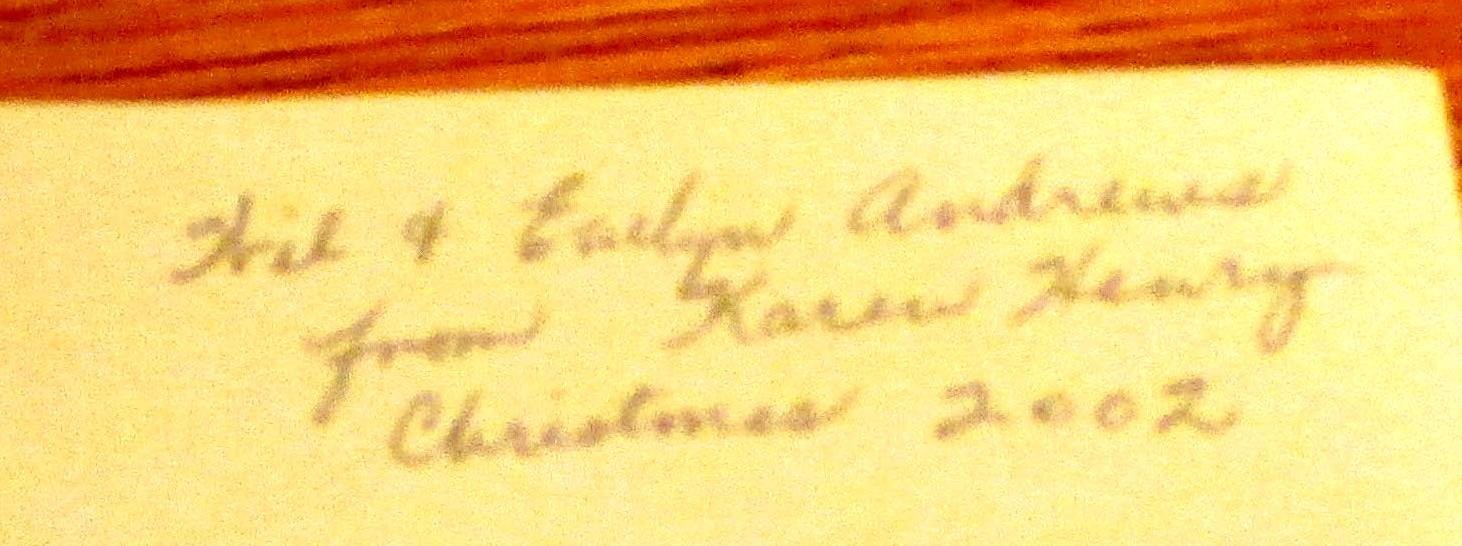 & Evelyn Andrews
from Karen Henry
Christmas 2002